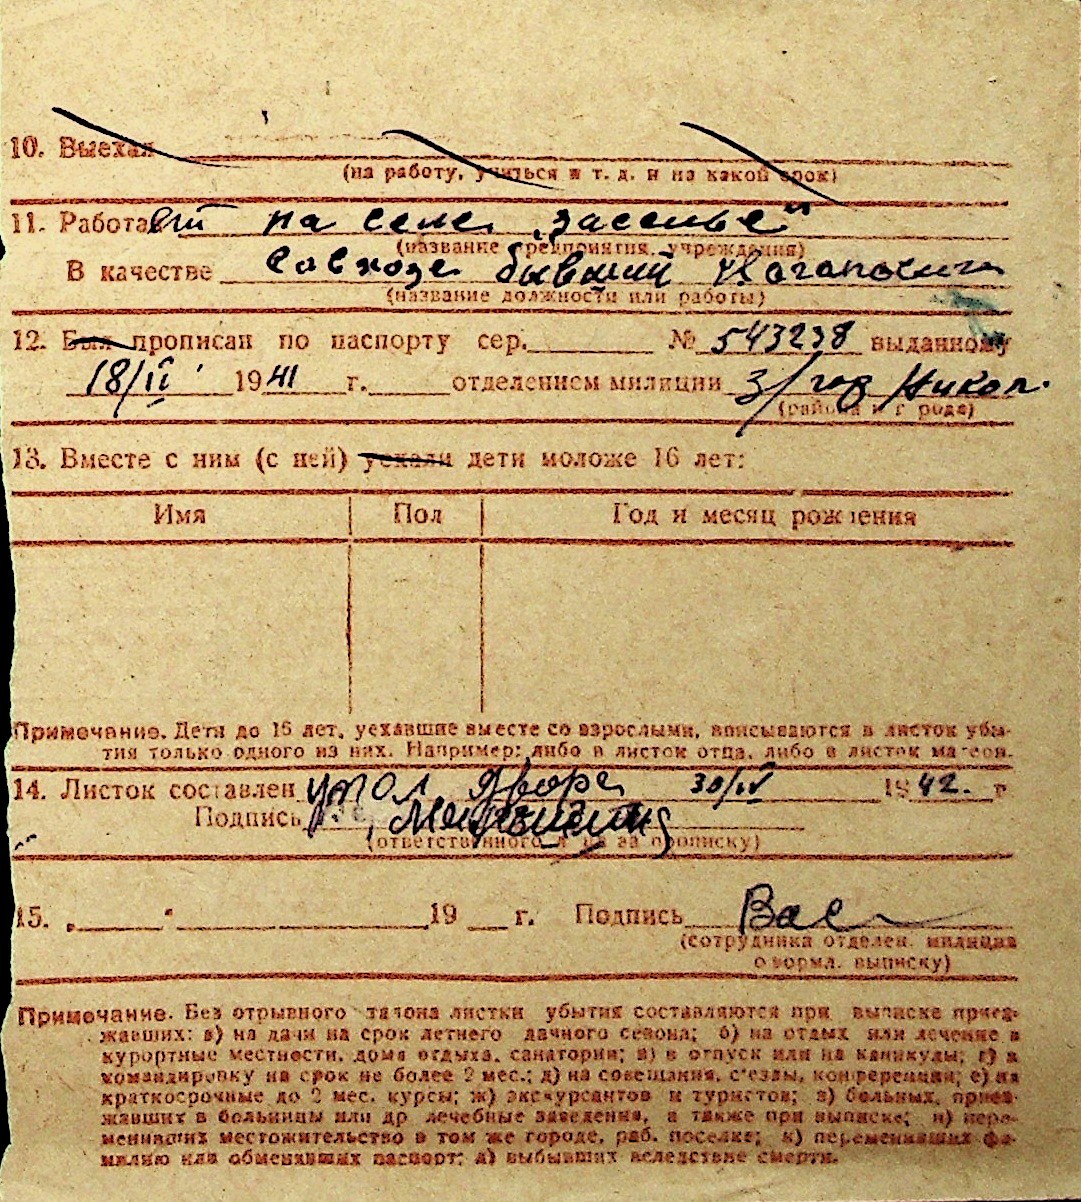 10. Выехал
(на работу, учиться и т. д. и на какой срок)
11. Работает на селе „Засенье"
(название предприятия, учреждения)
В качестве Совхозе бывший
(название должности или работы)
12. Был прописан по паспорту сер. № 543238 выданному
18/II 1941 г. отделением милиции 3/гор Никол.
(района и города)
13. Вместе с ним (с ней) уехали дети моложе 16 лет:
Имя Пол Год и месяц рождения
Примечание. Дети до 16 лет, уехавшие вместе со взрослыми, вписываются в листок убы-
тия только одного из них. Например: либо в листок отца, либо в листок матери.
14. Листок составлен двора 30/IV 1942. г
Подпись
(ответственного за прописку)
15. „ " 19 г. Подпись Вас
(сотрудника отделен. милиции
оформл. выписку)
Примечание. Без отрывного талона листки убытия составляются при выписке приез-
жавших: а) на дачи на срок летнего дачного сезона; б) на отдых или лечение в
курортные местности, дома отдыха, санатории; в) в отпуск или на каникулы; г) в
командировку на срок не более 2 мес.; д) на совещания, с'езды, конференции; е) на
краткосрочные до 2 мес. курсы; ж) экскурсантов и туристов; з) больных, приез-
жавших в больницы или др лечебные заведения, а также при выписке; и) пере-
менивших местожительство в том же городе, раб. поселке; к) переменивших фа-
милию или обменявших паспорт; л) выбывших вследствие смерти.